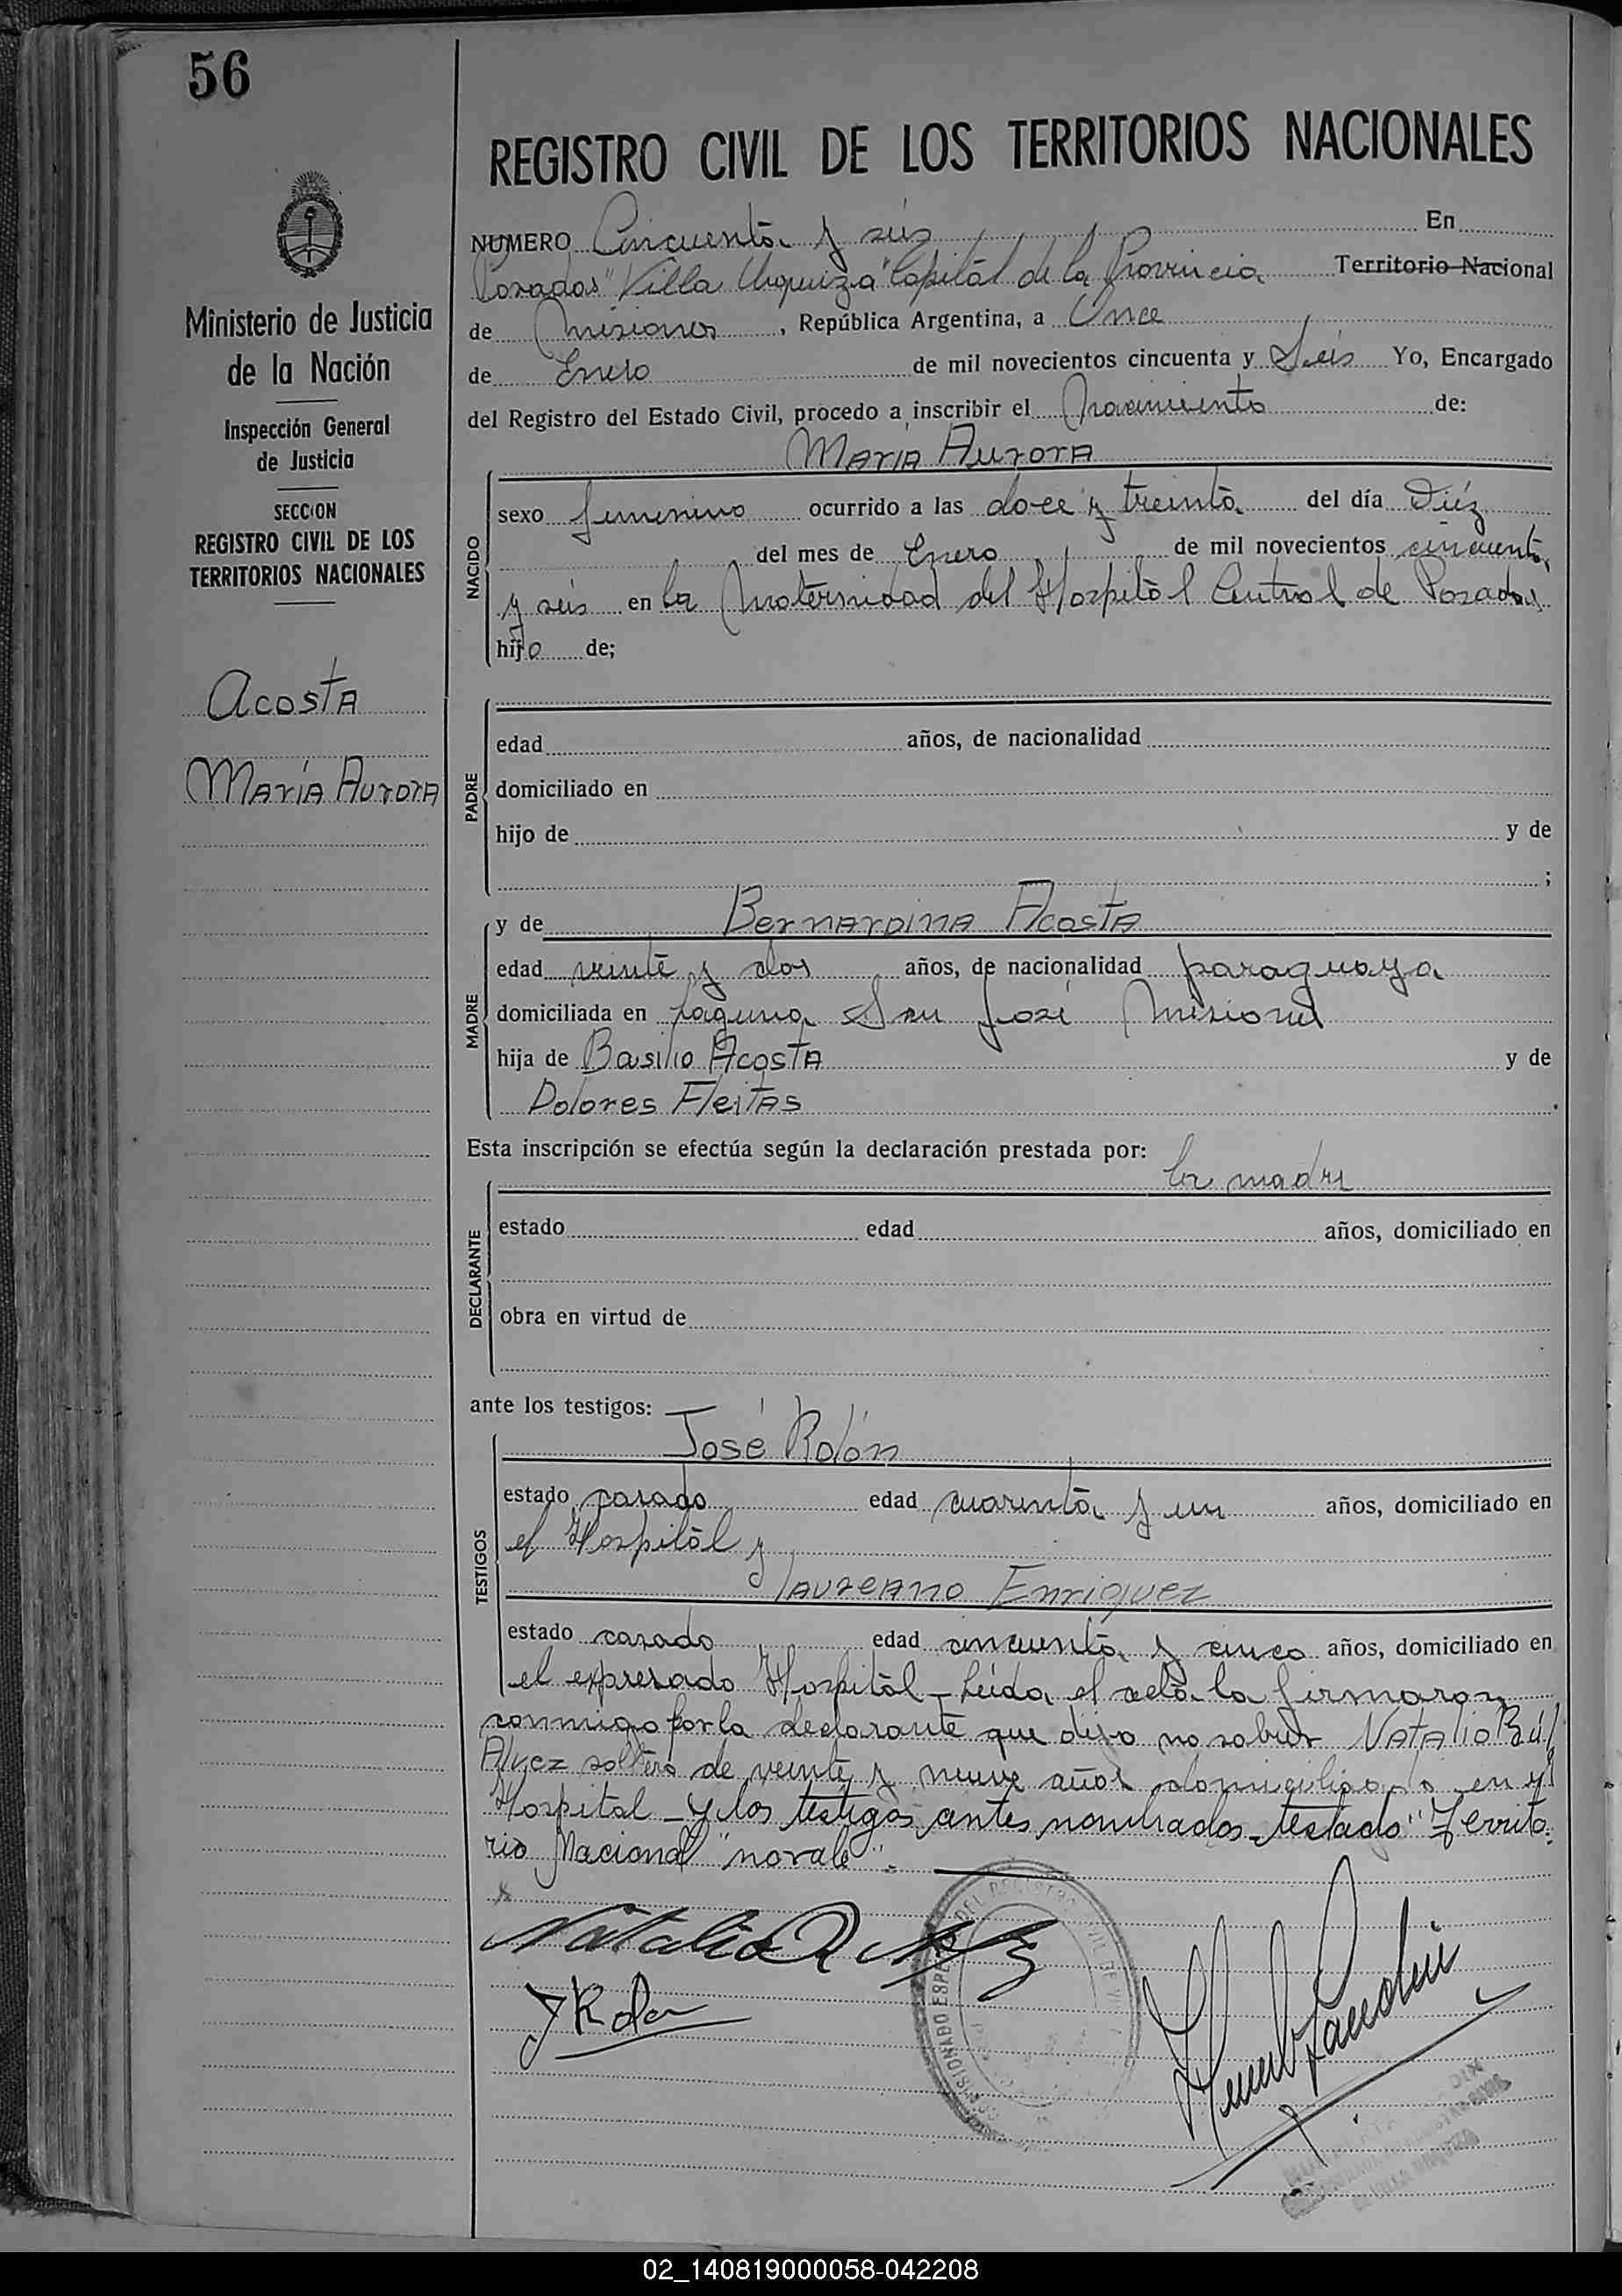 56
REGISTRO CIVIL DE LOS TERRITORIOS NACIONALES
NUMERO Cincuenta y seis En
Posadas "Villa Urquiza" Capital de la Provincia Territorio Nacional
de Misiones, República Argentina, a Once
de Enero de mil novecientos cincuenta y Seis Yo, Encargado
del Registro del Estado Civil, procedo a inscribir el Nacimiento de:
María Aurora
Ministerio de Justicia
de la Nación
Inspección General
de Justicia
SECCION
REGISTRO CIVIL DE LOS
TERRITORIOS NACIONALES
Acosta
María Aurora
NACIDO
sexo femenino ocurrido a las doce y treinta del día Diéz
del mes de Enero de mil novecientos cincuenta
y seis en la Maternidad del Hospital Central de Posadas
hijo de;
PADRE
edad años, de nacionalidad
domiciliado en
hijo de y de
;
MADRE
y de Bernardina Acosta
edad veinte y dos años, de nacionalidad paraguaya
domiciliada en Laguna San José Misiones
hija de Basilio Acosta y de
Dolores Fleitas.
Esta inscripción se efectúa según la declaración prestada por:
la madre
DECLARANTE
estado edad años, domiciliado en
obra en virtud de
ante los testigos:
José Rolón
TESTIGOS
estado casado edad cuarenta y un años, domiciliado en
el Hospital y
Laureano Enriquez
estado casado edad cincuenta y cinco años, domiciliado en
el expresado Hospital - Leída el acta la firmaron
conmigo por la declarante que dijo no saber Natalio Raúl
Alvez soltero de veinte y nueve años domiciliado en el
Hospital - y los testigos antes nombrados - testado "Territo-
rio Nacional" no vale".
Natalio R Alvez
J Rolon
02_140819000058-042208